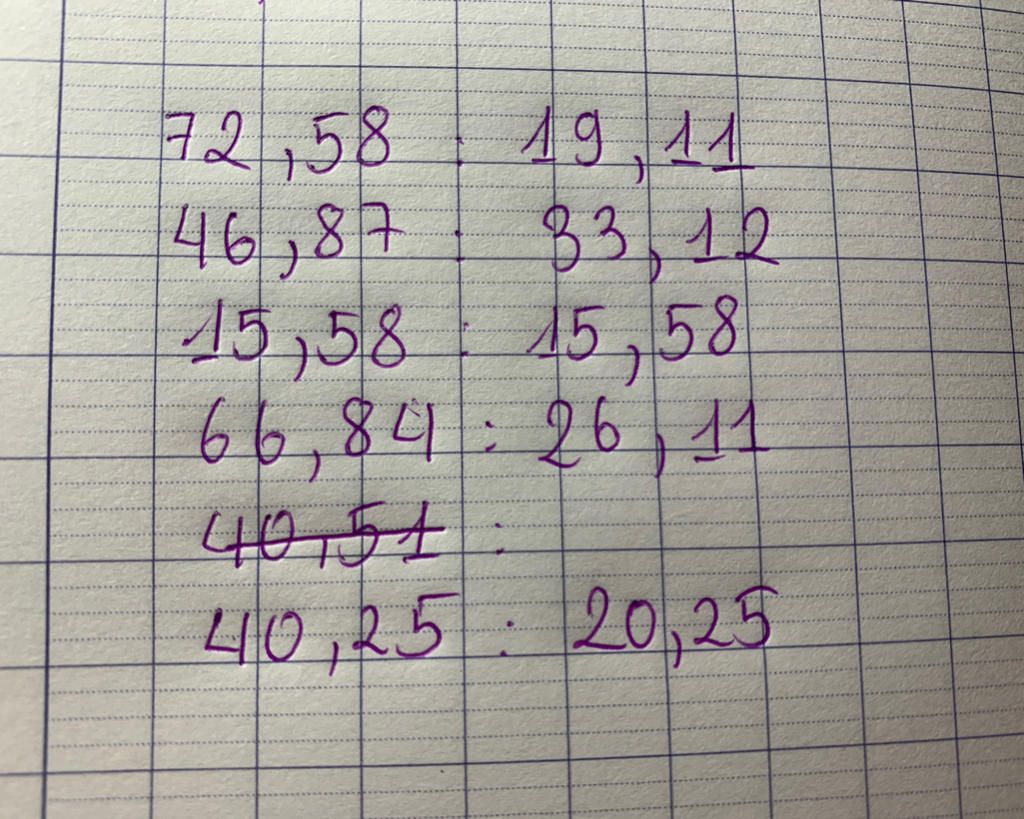 72,58 : 19,11
46,87 : 33,12
15,58 : 15,58
66,84 : 26,11
40,51 :
40,25 : 20,25